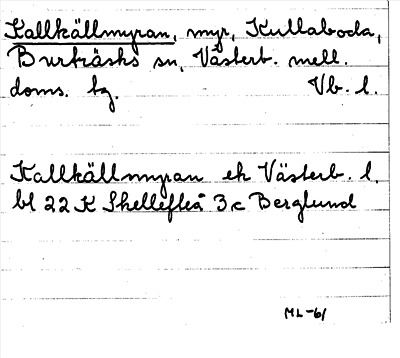 Kallkällmyran, myr, Kullaboda,
Burträsks sn, Västerb. mell.
doms. hg. Vb. l.
Kallkällmyran ek Västerb. l.
bl 22 K Skellefteå 3c Berglund
ML-61